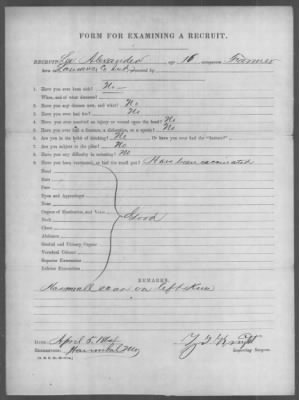 FORM FOR EXAMINING A RECRUIT.
RECRUIT, Alexander age 18 occupation Farmer
Born Co by
1. Have you ever been sick? No
When, and of what disease?
2. Have you any disease now, and what? No
3. Have you ever had fits? No
4. Have you ever received an injury or wound upon the head? No
5. Have you ever had a fracture, a dislocation, or a sprain? No
6. Are you in the habit of drinking? No Or have you ever had the "horrors?"
7. Are you subject to the piles? No
8. Have you any difficulty in urinating? No
9. Have you been vaccinated, or had the small pox? Have been vaccinated
Head
Ears
Face
Eyes and Appendages
Nose
Organs of Mastication, and Voice
Neck
Chest
Abdomen
Genital and Urinary Organs
Vertebral Column
Superior Extremities
Inferior Extremities
Good
REMARKS.
Has small scar on left Knee
DATE: April 5.
RENDEZVOUS: Hannibal Mo
Inspecting Surgeon.